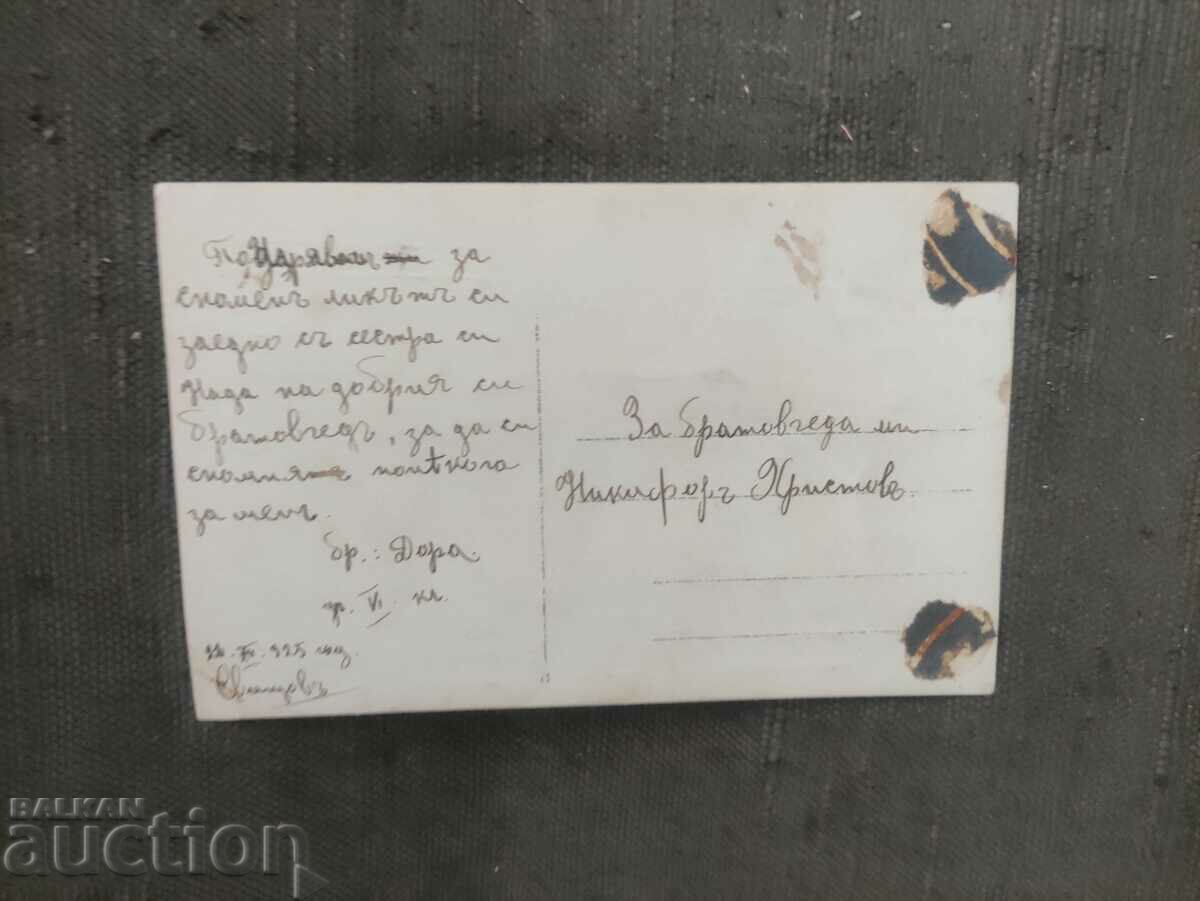 за
споменъ ликътъ си
заедно съ сестра си
Нада на добрия си
братовчедъ, за да си
спомня понѣкога
за менъ.
бр.: Дора.
VI кл.
За братовчеда ми
Никифоръ Христовъ.
BALKAN
auction